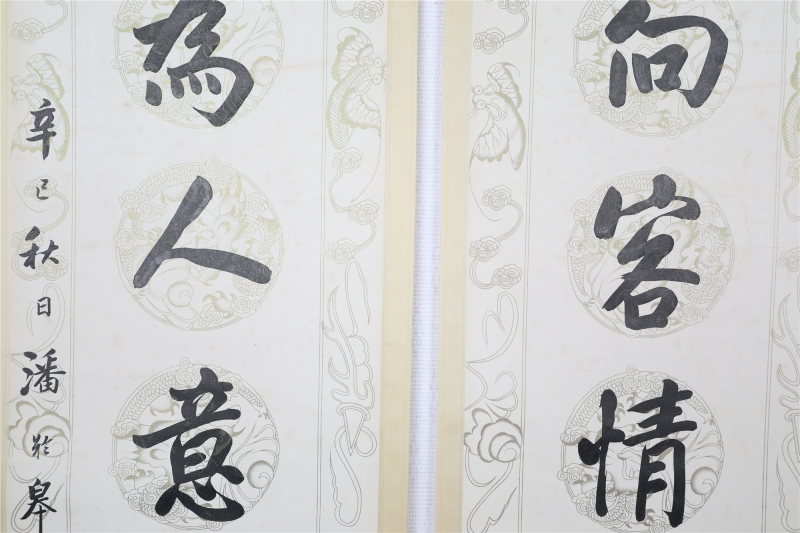 向客情
為人意
辛巳秋日潘龄皋